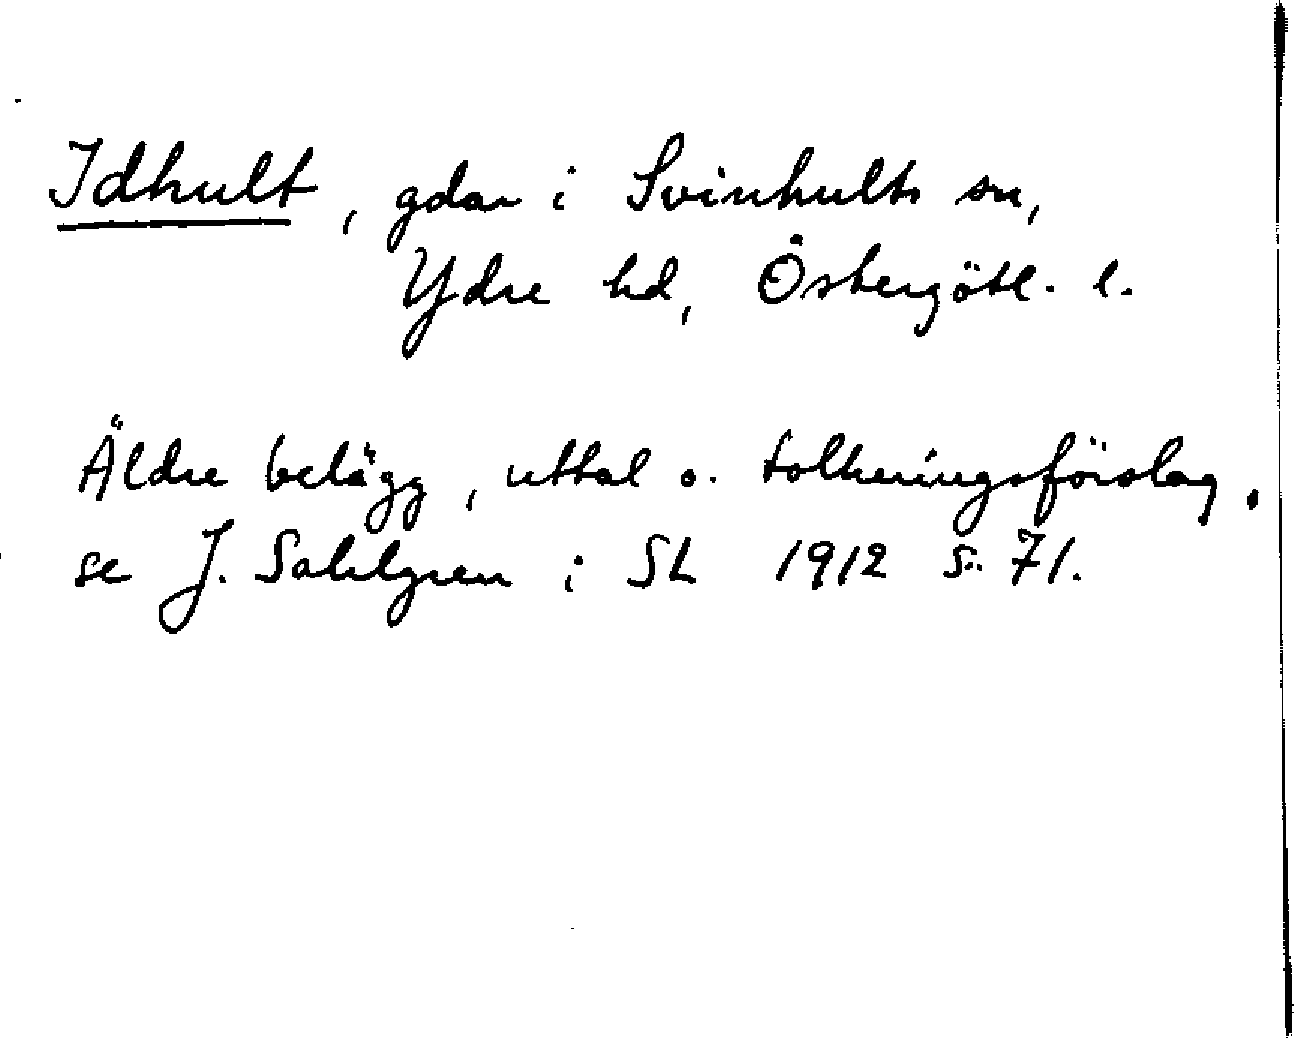 Idhult, gdar i Svinhults sn,
Ydre hd, Östergötl. l.
Äldre belägg, uttal o. tolkningsförslag,
se J. Sahlgren i SL 1912 s. 71.